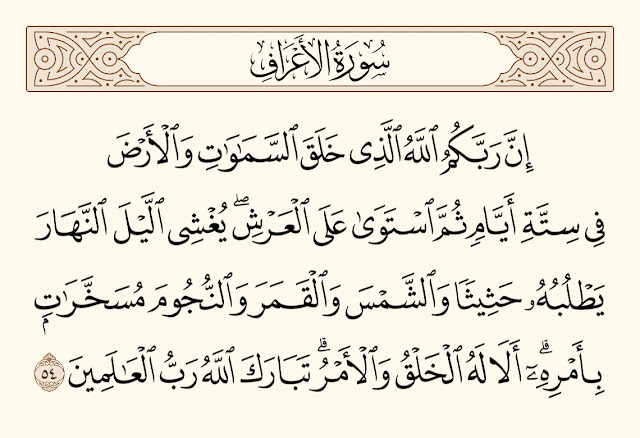 سُورَةُ الأَعْرَافِ
إِنَّ رَبَّكُمُ ٱللَّهُ ٱلَّذِى خَلَقَ ٱلسَّمَٰوَٰتِ وَٱلْأَرْضَ
فِى سِتَّةِ أَيَّامٍ ثُمَّ ٱسْتَوَىٰ عَلَى ٱلْعَرْشِ ۖ يُغْشِى ٱلَّيْلَ ٱلنَّهَارَ
يَطْلُبُهُۥ حَثِيثًا وَٱلشَّمْسَ وَٱلْقَمَرَ وَٱلنُّجُومَ مُسَخَّرَٰتٍۭ
بِأَمْرِهِۦٓ ۗ أَلَا لَهُ ٱلْخَلْقُ وَٱلْأَمْرُ ۗ تَبَارَكَ ٱللَّهُ رَبُّ ٱلْعَٰلَمِينَ ٥٤